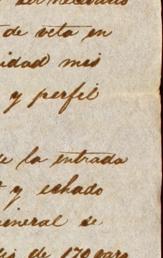 de veta en
idad mis
y perfil
de la entrada
y echado
mineral se
de 170 varas